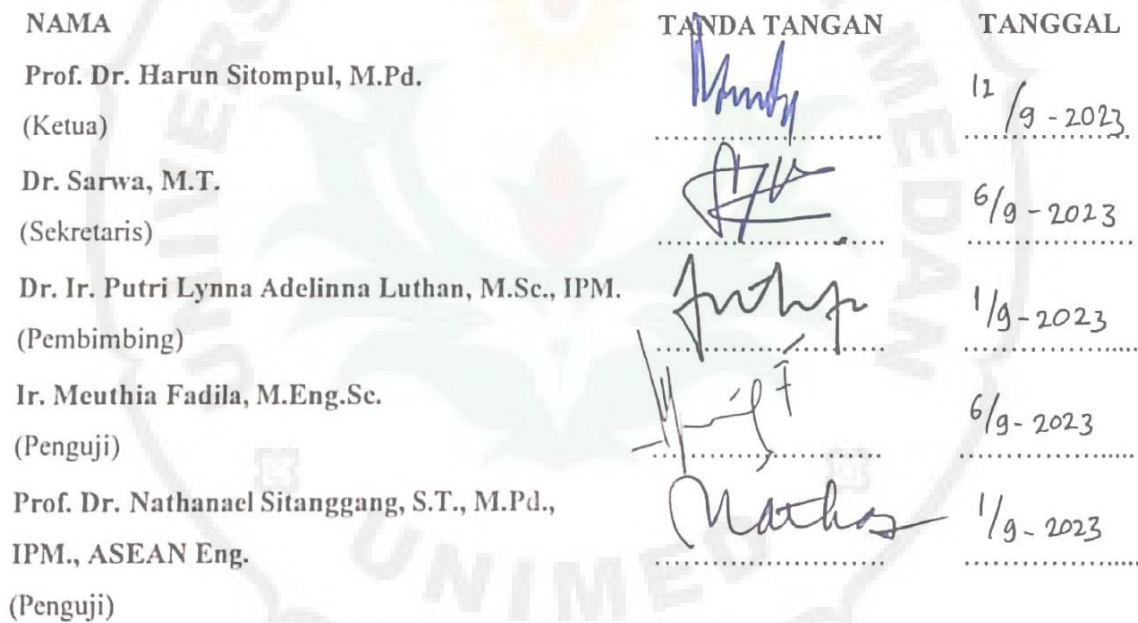 NAMA TANDA TANGAN TANGGAL
Prof. Dr. Harun Sitompul, M.Pd.
(Ketua) 12/9 - 2023
Dr. Sarwa, M.T.
(Sekretaris) 6/9 - 2023
Dr. Ir. Putri Lynna Adelinna Luthan, M.Sc., IPM.
(Pembimbing) 1/9 - 2023
Ir. Meuthia Fadila, M.Eng.Sc.
(Penguji) 6/9 - 2023
Prof. Dr. Nathanael Sitanggang, S.T., M.Pd.,
IPM., ASEAN Eng. 1/9 - 2023
(Penguji)
UNIMED